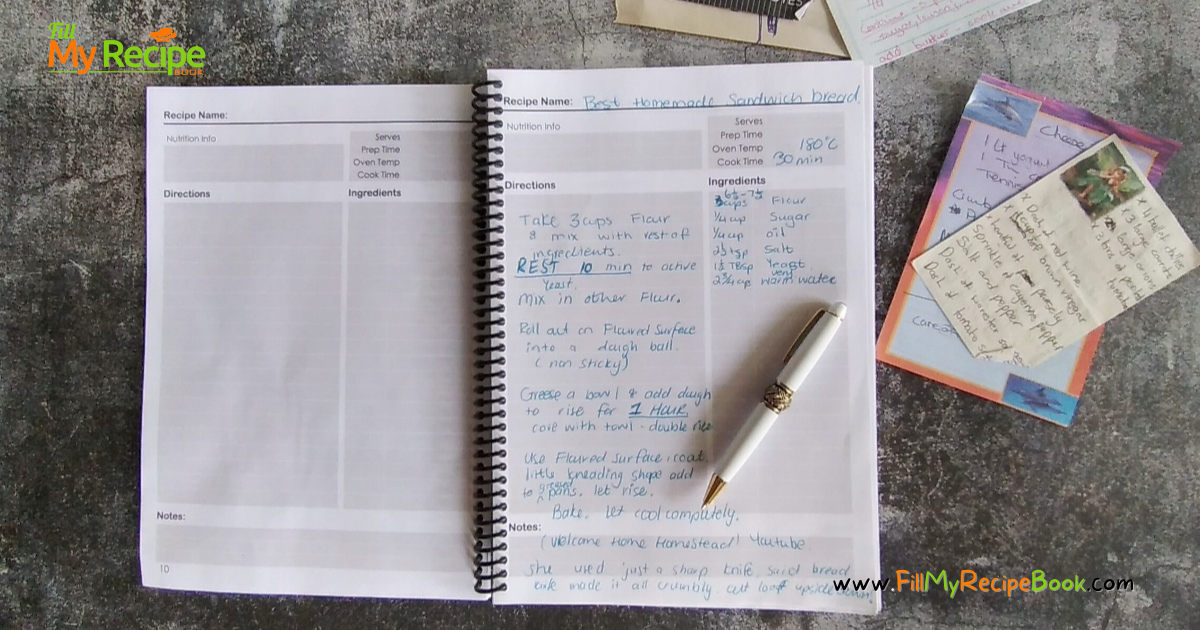 Fill
My Recipe
BOOK
Recipe Name:
Nutrition Info
Serves
Prep Time
Oven Temp
Cook Time
Directions
Ingredients
Notes:
10
Recipe Name: Best Homemade Sandwich bread
Nutrition Info
Serves
Prep Time
Oven Temp 180°C
Cook Time 30 min
Directions
Take 3 cups Flour
& mix with rest of
ingredients.
REST 10 min to active
Yeast.
Mix in other Flour.
Roll out on Floured surface
into a dough ball.
(non sticky)
Grease a bowl & add dough
to rise for 1 HOUR
cove with towl - double rise
Use Floured surface, coat,
little kneading shape add
to greased pans. let rise.
Bake. let cool completely.
Ingredients
6½-7½
cups Flour
¼ cup Sugar
¼ cup oil
2½ tsp Salt
1½ TBsp Yeast
very
2¾ cup warm water
Notes:
(Welcome Home Homestead) Youtube
she used just a sharp knife, said bread
knife made it all crumbly. cut loaf upside down
add butter
Cheese
1 Tin
Tennis
4 thick
3 large
1 large onion
Dash red wine
brown vinegar
Sprinkle cayenne pepper
Salt and pepper
Dash of
Dash of tomato
www.FillMyRecipeBook.com